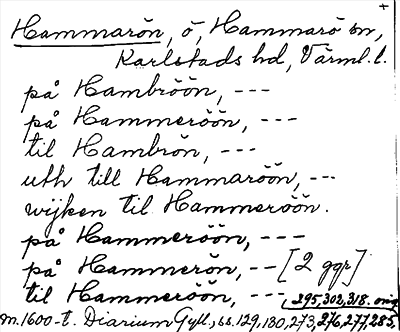 +
Hammarön, ö, Hammarö sn,
Karlstads hd, Värml. l.
på Hambröön, ---
på Hammeröön, ---
til Hambrön, ---
uth till Hammaröön, ---
wijken til Hammeröön.
på Hammeröön, ---
på Hammerön, -- [2 ggr]
til Hammeröön, --- 295, 302, 318. orig
m. 1600-t. Diarium Gyll., ss. 129, 130, 273, 276, 277, 285,